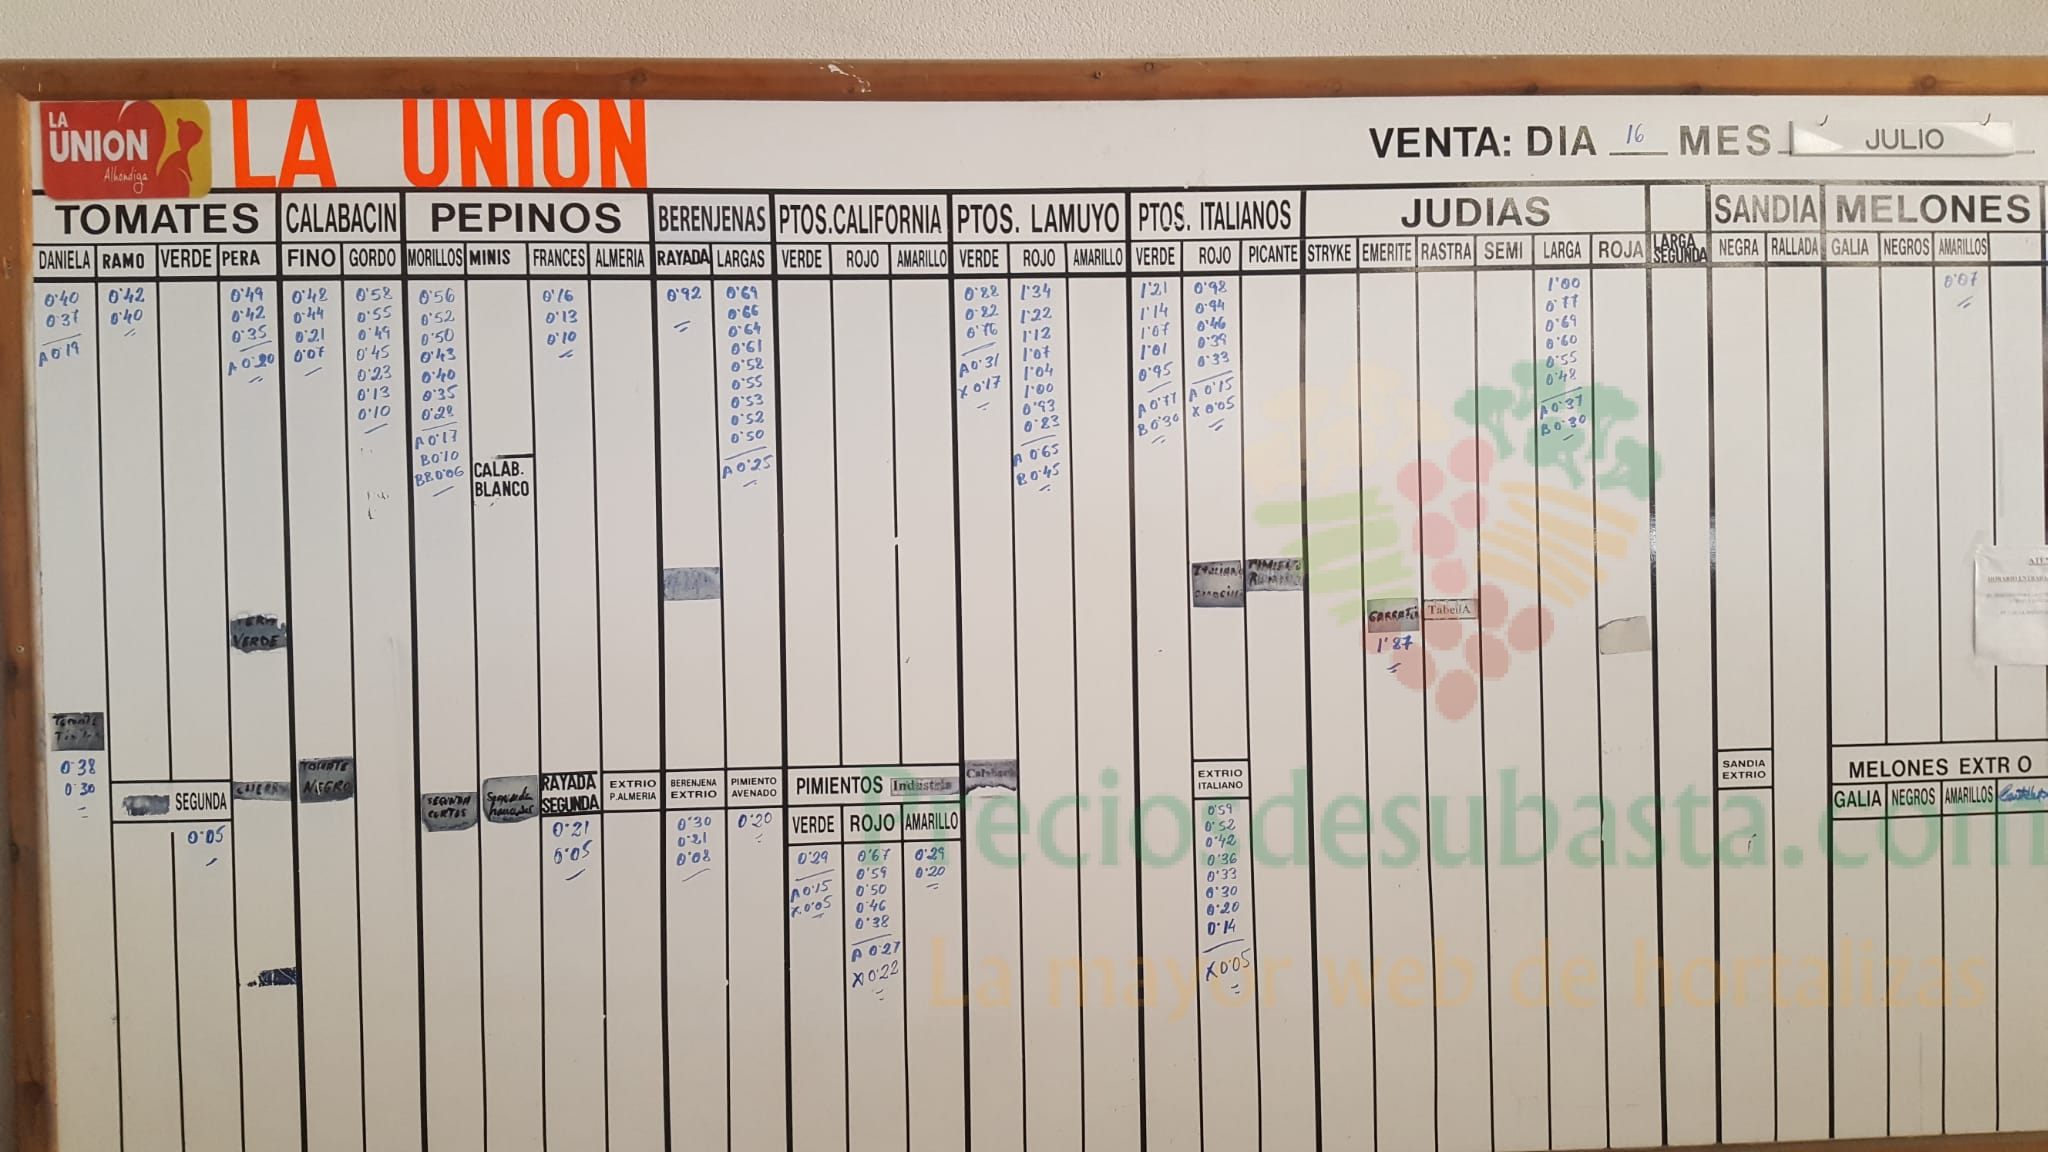 LA UNION Alhondiga
LA UNION
VENTA: DIA 16 MES JULIO
TOMATES CALABACIN PEPINOS BERENJENAS PTOS.CALIFORNIA PTOS. LAMUYO PTOS. ITALIANOS JUDIAS SANDIA MELONES
DANIELA RAMO VERDE PERA FINO GORDO MORILLOS MINIS FRANCES ALMERIA RAYADA LARGAS VERDE ROJO AMARILLO VERDE ROJO AMARILLO VERDE ROJO PICANTE STRYKE EMERITE RASTRA SEMI LARGA ROJA LARGA SEGUNDA NEGRA RALLADA GALIA NEGROS AMARILLOS
0'40 0'42 0'49 0'48 0'58 0'56 0'16 0'92 0'69 0'88 1'34 1'21 0'98 1'00 0'07
0'37 0'40 0'42 0'44 0'55 0'52 0'13 0'66 0'82 1'22 1'14 0'94 0'77
0'35 0'21 0'49 0'50 0'10 0'64 0'76 1'12 1'07 0'46 0'69
A 0'19 A 0'20 0'07 0'45 0'43 0'61 A 0'31 1'07 1'01 0'39 0'60
0'23 0'40 0'58 X 0'17 1'04 0'95 0'33 0'55
0'13 0'35 0'55 1'00 A 0'77 A 0'15 0'48
0'10 0'28 0'53 0'93 B 0'30 X 0'05 A 0'37
A 0'17 0'52 0'83 B 0'30
B 0'10 0'50 A 0'65
BB 0'06 A 0'25 B 0'45
CALAB. BLANCO
VERDE
GARRAFAL TabellA
1'87
0'38
0'30
SEGUNDA
0'05
TOMATE NEGRO
SEGUNDA CORTOS
RAYADA SEGUNDA EXTRIO P.ALMERIA BERENJENA EXTRIO PIMIENTO AVENADO
0'21 0'30 0'20
0'05 0'21
0'08
PIMIENTOS Industria
VERDE ROJO AMARILLO
0'29 0'67 0'29
A 0'15 0'59 0'20
X 0'05 0'50
0'46
0'38
A 0'27
X 0'22
EXTRIO ITALIANO
0'59
0'52
0'42
0'36
0'33
0'30
0'20
0'14
X 0'05
SANDIA EXTRIO
MELONES EXTR O
GALIA NEGROS AMARILLOS
Preciosdesubasta.com
La mayor web de hortalizas